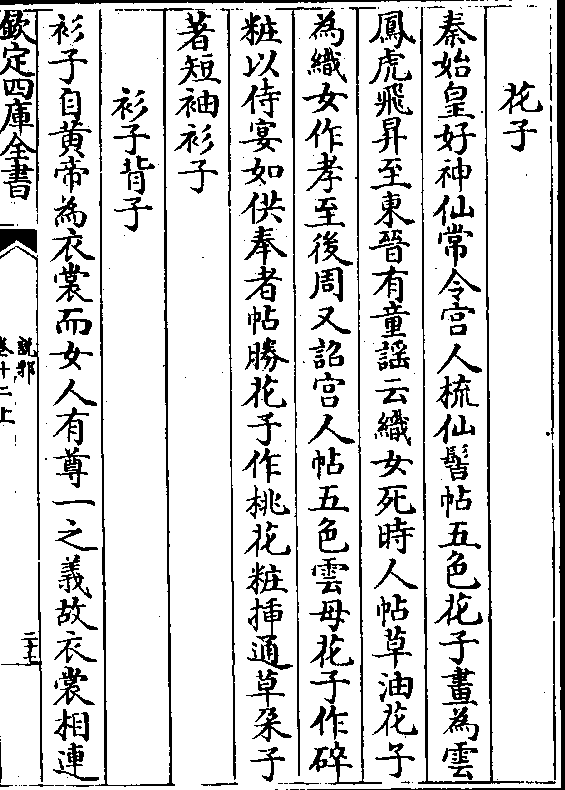 花子
秦始皇好神仙常令宫人梳仙髻帖五色花子畫為雲
鳳虎飛昇至東晉有童謡云織女死時人帖草油花子
為織女作孝至後周又詔宫人帖五色雲母花子作碎
粧以侍宴如供奉者帖勝花子作桃花粧插通草朶子
著短袖衫子
衫子背子
衫子自黄帝為衣裳而女人有尊一之義故衣裳相連
欽定四庫全書
說郛
卷十二上
二十五